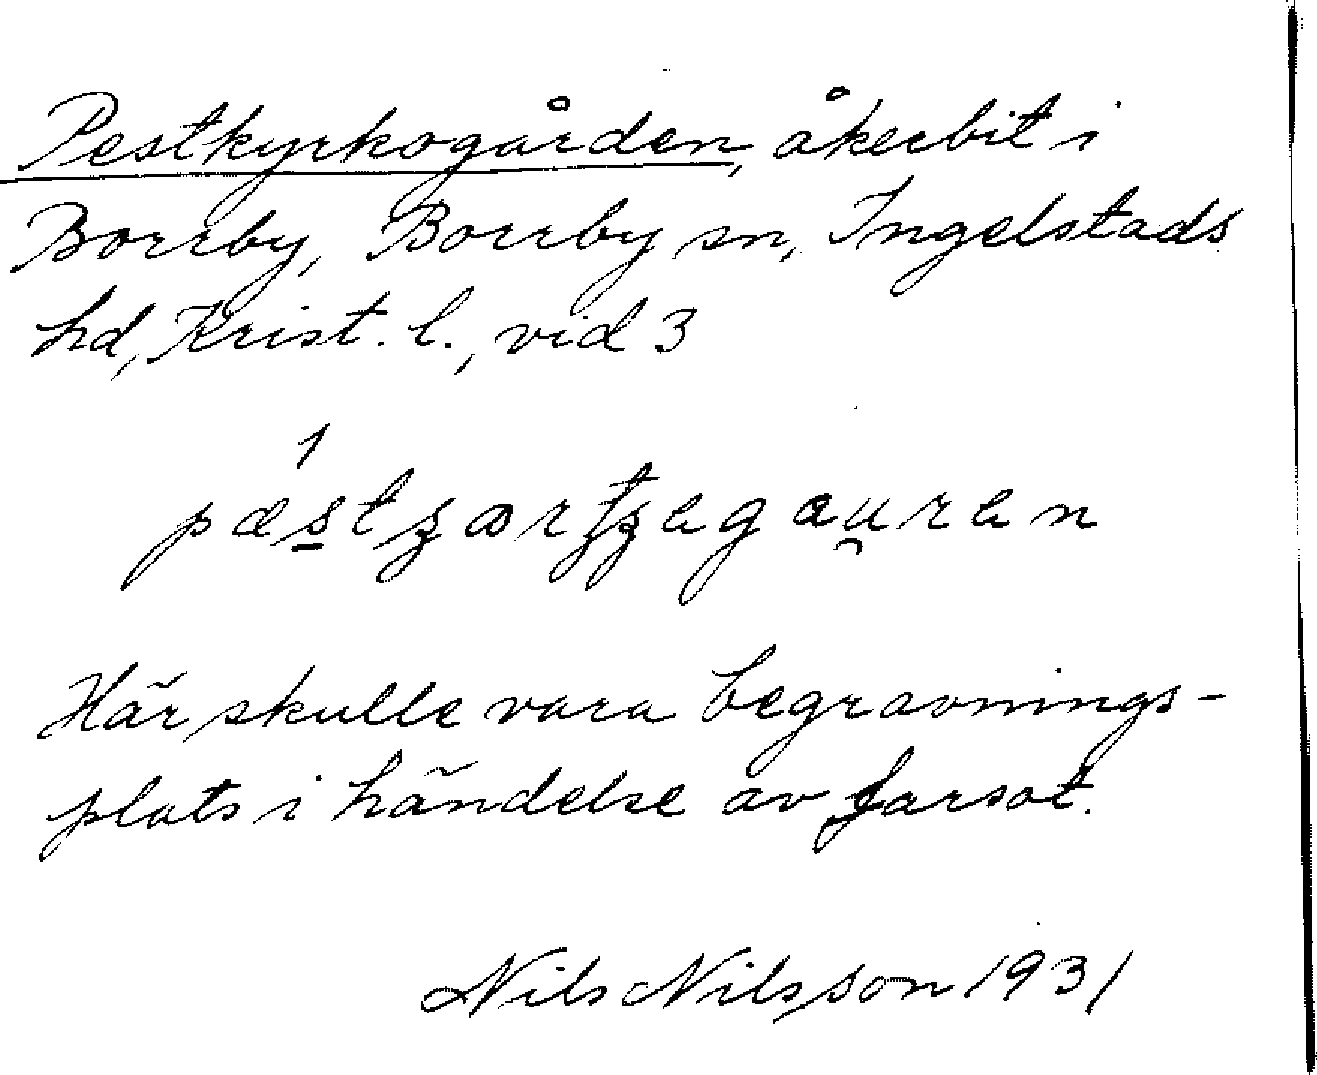 Pestkyrkogården, åkerbit i
Borrby, Borrby sn, Ingelstads
hd, Krist. l., vid 3
Här skulle vara begravnings-
plats i händelse av farsot.
Nils Nilsson 1931